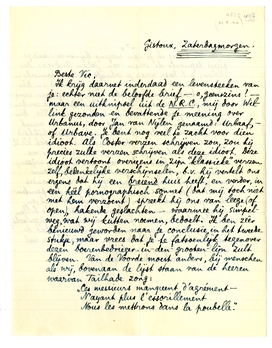 Gistoux, Zaterdagmorgen.
Beste Vic,
Ik krijg daarnet inderdaad een levensteeken van
je: echter niet de beloofde brief –
maar een uitknipsel uit de N.R.C., mij door Wil-
link gezonden en bevattende je meening over
Urbanus, door Jan van Nijlen genaamd: Urkaf
of Urbave. Je bent nog veel te zacht voor dien
idioot. Als Coster verzen schrijven zou, zou hij
precies zulke verzen schrijven als deze idioot. Deze
idioot vertoont overigens in zijn "klassieke" verzen
zelf, bedenkelijke verschijnselen, b.v. hij vertelt ons
ergens dat hij een breiend huis heeft, en verder, in
een heel pornographisch sonnet (dat mij toch niet
met hem verzoent) spreekt hij ons van leege (of
open), hakende geslachten – waarmee hij, simpel-
weg, wat wij kutten noemen, bedoelt. Ik ben zéér
benieuwd geworden naar je conclusie, in het tweede
stukje, maar vrees dat je te fatsoenlijk tegenover
dezen boerenbedrieger-in-den-grooten-lijn zult
blijven. Van de Voorde moet anders, bij menschen
als wij, bovenaan de lijst staan van de heeren
waarvan Tailhade zong:
"Ces messieurs manquent d'agrément –
N'ayant plus l'essorillement
Nous les mettrons dans la poubelle."